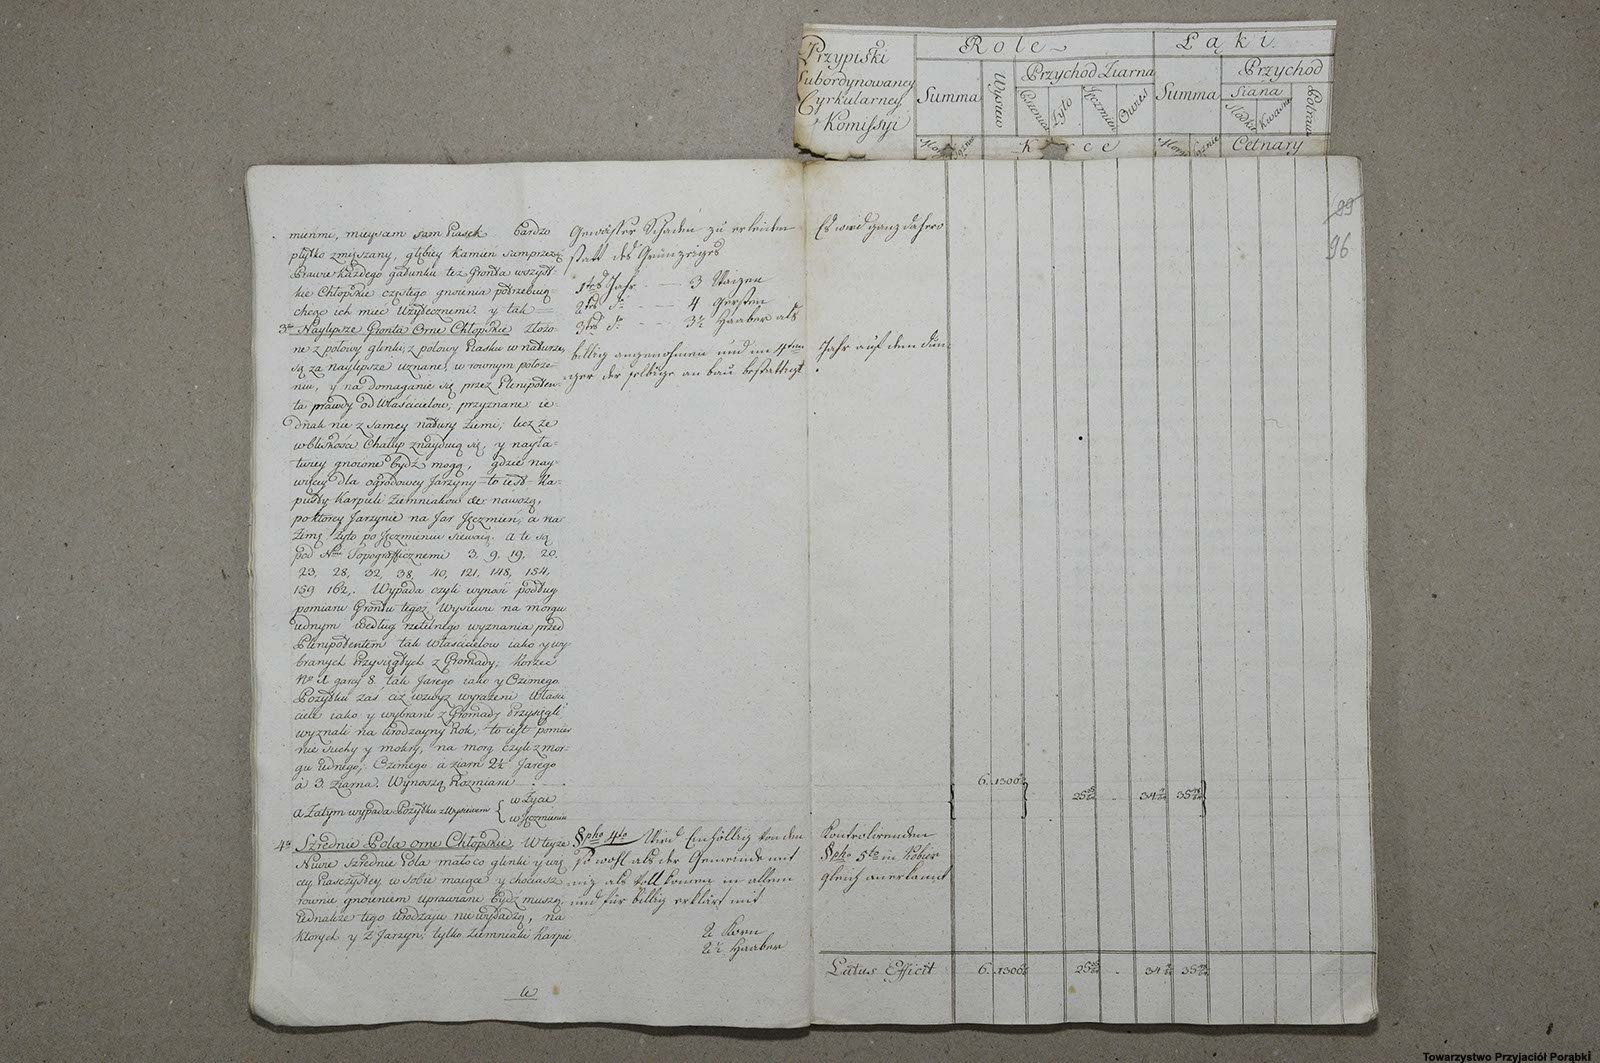 Przypiski
Subordynowaney
Cyrkularney
Komissyi
Role
Łąki
Summa
Wysiew
Przychod Ziarna
Pszenica
Żyto
Jęczmien
Owies
Summa
Przychod
Siana
Słodka
Kwaśna
Potraw
Korce
Cetnary
99
96
mienmi, mieysam sam Piasek bardzo
płytko zmięszany, głębiey Kamień
Prawie każdego gatunku tez Gronta wszyst-
kie Chłopskie częstego gnoienia potrzebuią
chcąc ich mieć Użytecznemi. y tak
3tio Naylepsze Gronta Orne Chłopskie złożo-
ne z połowy glinki, z połowy Piasku w naturze,
są za naylepsze uznane, w rownym położe-
niu, y na domaganie się przez Plenipoten-
ta prawdy od Właścicielow, przyznane ie-
dnak nie z samey natury Ziemi, lecz że
w bliskości Chałup znayduią się, y nayła-
twiey gnoione bydź mogą, gdzie nay-
więcey dla ogrodowey Jarzyny to iest Ka-
pusty Karpieli Ziemniakow &c nawożą,
po ktorey Jarzynie na Jar Jęczmień, a na
Zimę Żyto po Jęczmieniu siewaią. a te są
pod Nrmi Topograficznemi 3, 9, 19, 20,
23, 28, 32, 38, 40, 121, 148, 154,
159 162,. Wypada czyli wynosi podług
pomiaru Grontu tegoz Wysiewu na morgu
iednym według rzetelnego wyznania przed
Plenipotentem tak Właścicielow iako y wy-
branych Przysięgłych z Gromady, Korzec
No 1 garcy 8. tak Jarego iako y Ozimego
Pozytku zaś ciż wzwyz wyrażeni Własci
ciele iako y wybrani z Gromady Przysięgli
wyznali na Urodzayny Rok, to iest pomier
nie suchy y mokry, na morg czyli z mor-
gu iednego, Ozimego á ziarn 2½ Jarego
á 3. ziarna. Wynoszą Rozmiaru
a Zatym wypada Pozytku z Wysiewem { w Zycie
w Jęczmieniu
4to Szrednie Pola orne Chłopskie. W teyże
Niwie szrednie Pola mało co glinki y wię
cey Piasczystey w sobie maiące y chociasz
rownie gnoieniem uprawiane bydź muszą
iednakze tego Urodzaju nie wydadzą, na
ktorych y z Jarzyn, tylko Ziemniaki Karpie
le
Gewässer Schaden zu erleiden
statt des
1tes Jahr — 3 Waizen
2tes do — 4 Gersten
3tes do — 3½ Haaber als
billig angenohmen und im 4ten
ger der selbige an bau bestättigt
Es wird ganz dahero
Jahr auf dem dün-
§pho 4to Wird Einhöllig von den
so wohl als der Gemeinde mit
nig als Vollkomen in allem
und für billig erklärt mit
2 Korn
2½ Haaber
Kontrolirenden
§pho 5to in Kobier
gleich anerkannt
6. 1300
25
34
35
Latus Efficit
6. 1300
25
34
35
Towarzystwo Przyjaciół Porąbki